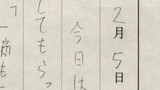 2月5日
今日は
してもらっ
「